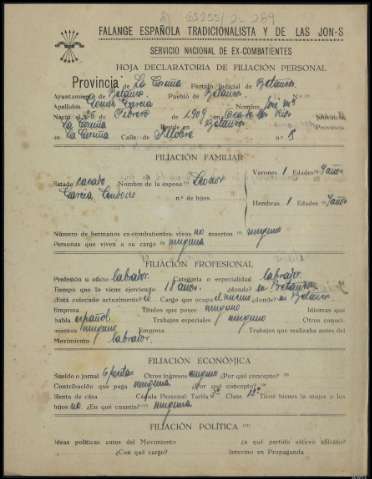 FALANGE ESPAÑOLA TRADICIONALISTA Y DE LAS JON-S
SERVICIO NACIONAL DE EX-COMBATIENTES
HOJA DECLARATORIA DE FILIACIÓN PERSONAL
Provincia de La Coruña Partido Judicial de Betanzos
Ayuntamiento de Betanzos Pueblo de Betanzos
Apellidos García Nombre José Mª
Nació el 26 de Febrero de 1909 en
La Coruña Reside en Betanzos Provincia
La Coruña Calle de n.º 8
FILIACIÓN FAMILIAR
Estado casado Nombre de la esposa Leonor
García n.º de hijos
Varones 1 Edades años
Hembras 1 Edades años
Número de hermanos ex-combatientes, vivos no muertos ninguno
Personas que viven a su cargo ninguna
FILIACIÓN PROFESIONAL
Profesión u oficio labrador Categoría o especialidad labrador
Tiempo que la viene ejerciendo 18 años ¿dónde? en Betanzos
¿Está colocado actualmente? Cargo que ocupa el mismo ¿dónde? en Betanzos
Empresa Títulos que posee ninguno Idiomas que
habla español Trabajos especiales ninguno Otros conoci-
mientos ninguno Empresa Trabajos que realizaba antes del
Movimiento labrador
FILIACIÓN ECONÓMICA
Sueldo o jornal 6 pesetas Otros ingresos ninguno ¿Por qué concepto?
Contribución que paga ninguna ¿Por qué concepto?
Renta de casa Cédula Personal Tarifa 3ª Clase Tiene bienes la esposa o los
hijos no ¿En qué cuantía? ninguna
FILIACIÓN POLÍTICA
Ideas políticas antes del Movimiento ¿a qué partido estuvo afiliado?
¿Con qué cargo? Intervino en Propaganda